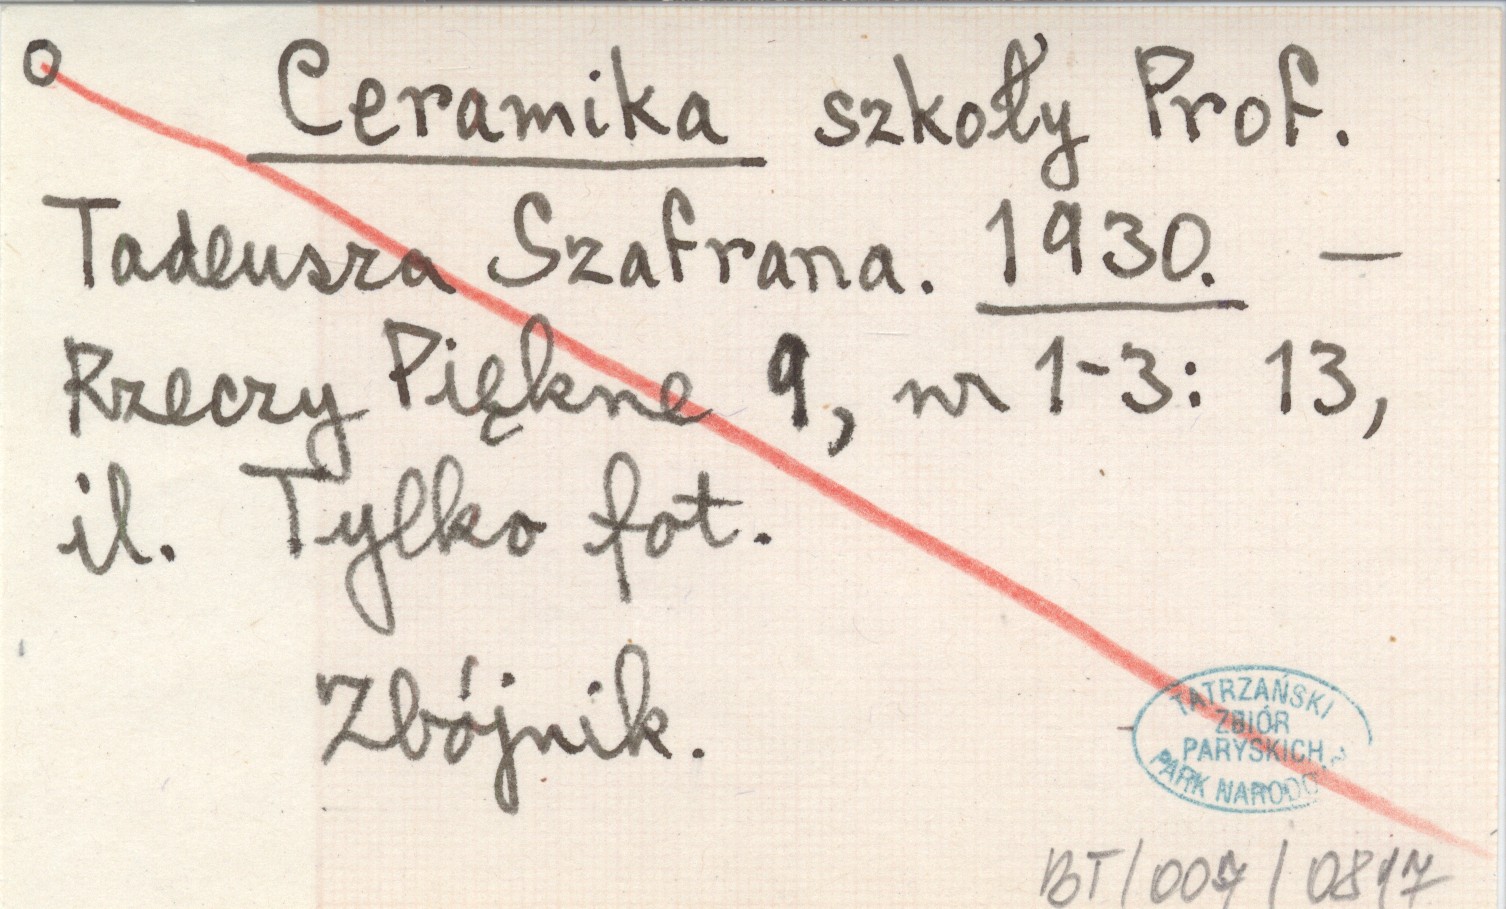 o Ceramika szkoły Prof.
Tadeusza Szafrana. 1930. —
Rzeczy Piękne 9, nr 1-3: 13,
il. Tylko fot.
Zbójnik.
TATRZAŃSKI
ZBIÓR
PARYSKICH
PARK NARODO
BT/007/0817